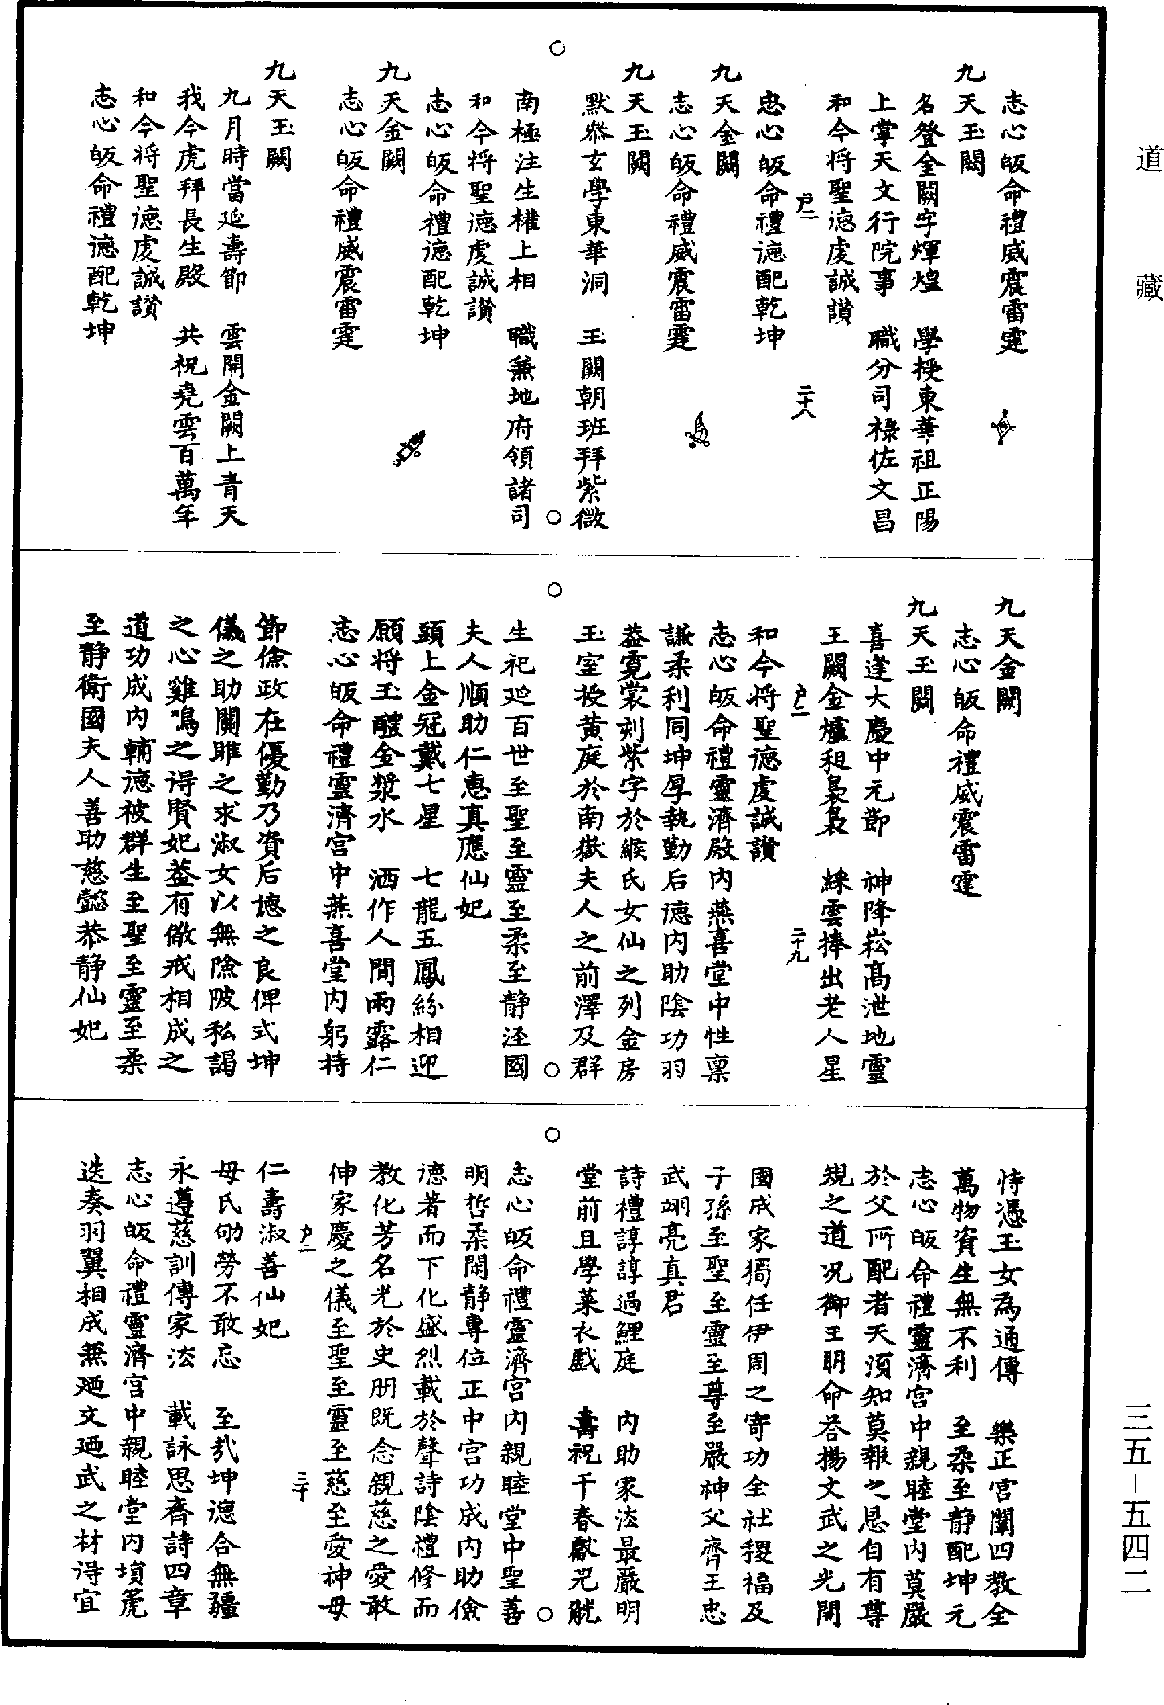 道藏
志心皈命禮威震雷霆
九天玉闕
名登金闕字煇煌　學授東華祖正陽
上掌天文行院事　職分司祿佐文昌
和今將聖德虔誠讚
尸二　二十八
志心皈命禮德配乾坤
九天金闕
志心皈命禮威震雷霆
九天玉闕
默叅玄學東華洞　玉闕朝班拜紫微
南極注生權上相　職兼地府領諸司
和今將聖德虔誠讚
志心皈命禮德配乾坤
九天金闕
志心皈命禮威震雷霆
九天玉闕
九月時當延壽節　雲開金闕上青天
我今虎拜長生殿　共祝堯雲百萬年
和今將聖德虔誠讚
志心皈命禮德配乾坤
九天金闕
志心皈命禮威震雷霆
九天玉闕
喜逢大慶中元節　神降崧高泄地靈
玉闕金爐租裊裊　綵雲捧出老人星
尸二　二十九
和今將聖德虔誠讚
志心皈命禮靈濟殿內燕喜堂中性稟
謙柔利同坤厚執勤后德內助陰功羽
葢霓裳刻紫字於緱氏女仙之列金房
玉室授黃庭於南嶽夫人之前澤及群
生祀延百世至聖至靈至柔至靜淫國
夫人順助仁惠真應仙妃
頭上金冠戴七星　七龍五鳳紛相迎
願將玉醴金漿水　洒作人間雨露仁
志心皈命禮靈濟宮中燕喜堂內躬持
節儉政在優勤乃資后德之良俾式坤
儀之助關雎之求淑女以無險陂私謁
之心雞鳴之得賢妃葢有儆戒相成之
道功成內輔德被群生至聖至靈至柔
至靜衛國夫人善助慈懿恭靜仙妃
恃憑玉女為通傳　樂正宮闈四教全
萬物資生無不利　至柔至靜配坤元
志心皈命禮靈濟宮中親睦堂內莫嚴
於父所配者天須知莫報之恩自有尊
親之道况御王明命荅揚文武之光開
國成家獨任伊周之寄功全社稷福及
子孫至聖至靈至尊至嚴神父齊王忠
武翊亮真君
詩禮諄諄過鯉庭　內助家法最嚴明
堂前且學萊衣戲　壽祝千春獻兕觥
志心皈命禮靈濟宮內親睦堂中聖善
明哲柔閑靜專位正中宮功成內助儉
德著而下化盛烈載於聲詩陰禮修而
教化芳名光於史冊既念親慈之愛敢
伸家慶之儀至聖至靈至慈至愛神母
尸二　三十
仁壽淑善仙妃
母氏劬勞不敢忘　至哉坤德合無疆
永遵慈訓傳家法　載詠思齊詩四章
志心皈命禮靈濟宮中親睦堂內塤篪
迭奏羽翼相成兼廼文廼武之材得宜
三五－五四二